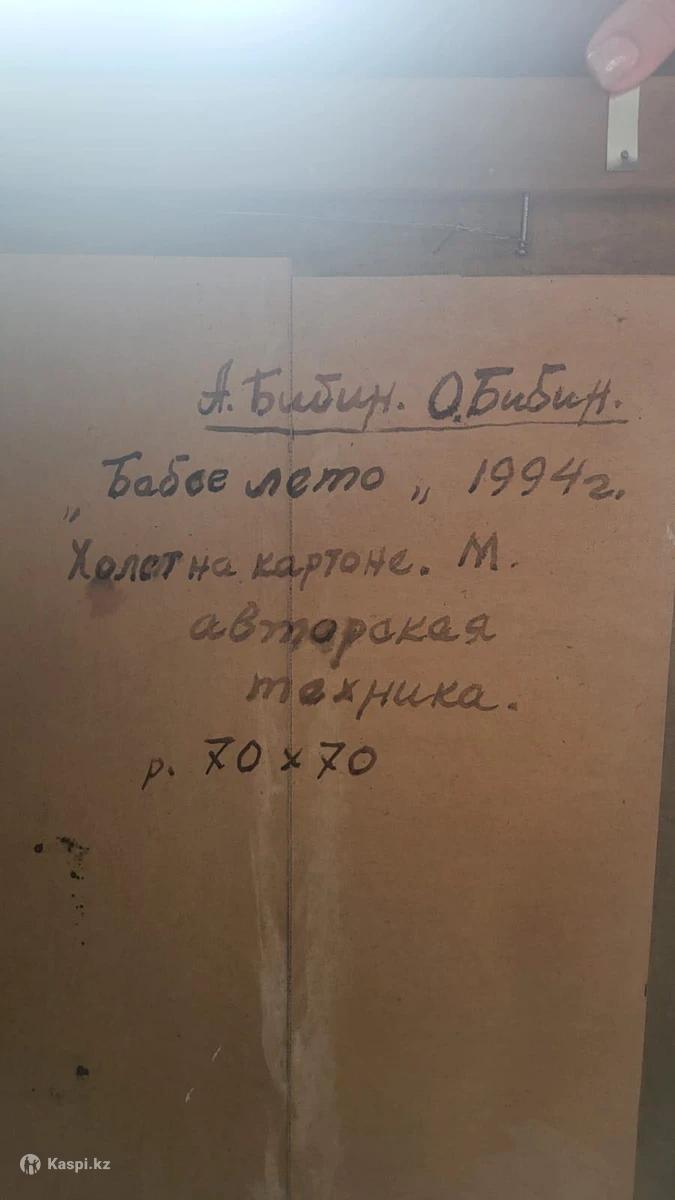 А. Бибин. О. Бибин.
„Бабье лето„ 1994 г.
Холст на картоне. М.
авторская
техника.
р. 70 x 70
Kaspi.kz